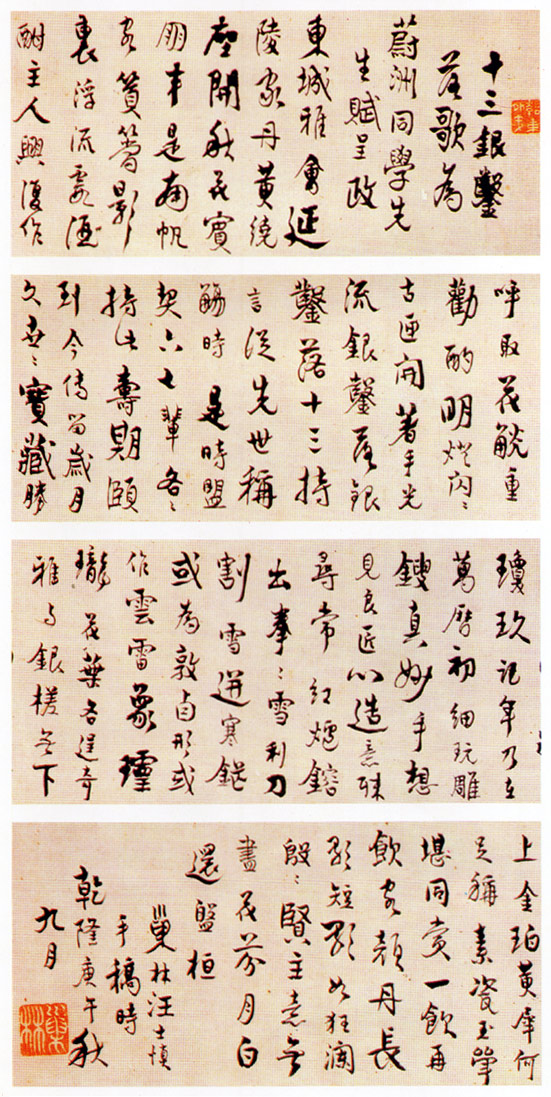 十三銀鑿
落歌為
蔚洲同學先
生賦呈政
東城雅會延
陵家丹黃繞
座開秋花賓
朋半是南帆
客鬢簪影
裏浮流霞酒
酣主人興復作
呼取花觥重
勸酌明燈閃々
古匣開著手光
流銀鑿落銀
鑿落十三持
言從先世稱
觴時是時盟
契六七輩各々
持此壽期頤
到今傳留歲月
久世々寶藏勝
瓊玖記年乃在
萬曆初細玩雕
鎪真妙手想
見良匠心造意殊
尋常紅爐鎔
出拳々雪利刀
割雪迸寒鋩
或為敦卣形或
作雲雷象
瓏花葉各逞奇
雅與銀槎無下
上金珀黃犀何
足稱素瓷玉斝
堪同賞一飲再
飲客顏丹長
歌短歌如狂瀾
殷々賢主意無
盡花芬月白
還盤桓
巢林汪士慎
手稿時
乾隆庚午秋
九月
巢林